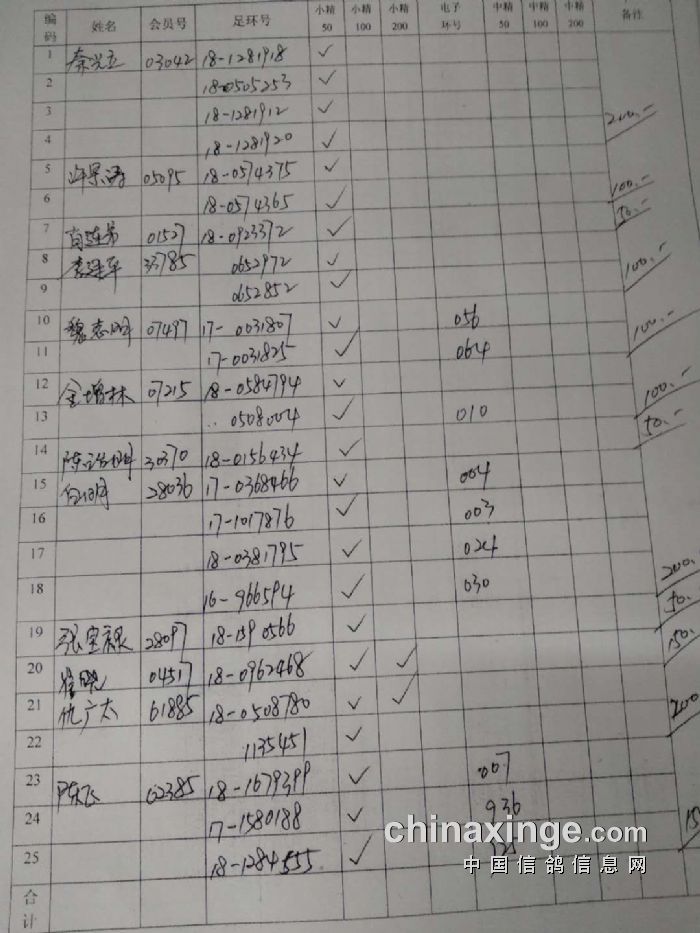 编码 姓名 会员号 足环号 小精50 小精100 小精200 电子环号 中精50 中精100 中精200 备注
1 秦兴立 03042 18-1281918 ✓
2 18-0505253 ✓
3 18-1281912 ✓
4 18-1281920 ✓ 200.-
5 05095 18-0574375 ✓
6 18-0574365 ✓ 100.-
7 01527 18-0923372 ✓ 50.-
8 33785 0652972 ✓
9 0652852 ✓ 100.-
10 魏志明 07497 17-0031807 ✓ 056
11 17-0031825 ✓ 064 100.-
12 金增林 07215 18-0584794 ✓
13 0508004 ✓ 010 100.-
14 30370 18-0156434 ✓ 50.-
15 28036 17-0368466 ✓ 004
16 17-1017876 ✓ 003
17 18-0381795 ✓ 024
18 16-966594 ✓ 030 200.
19 28097 18-1590566 ✓ 50.
20 04517 18-0962468 ✓ ✓
21 仇广太 61885 18-0508780 ✓ ✓
22 1135451 ✓ 200
23 陈飞 02385 18-1679399 ✓ 007
24 17-1580188 ✓ 936
25 18-1284555 ✓
合计
chinaxinge.com
中国信鸽信息网